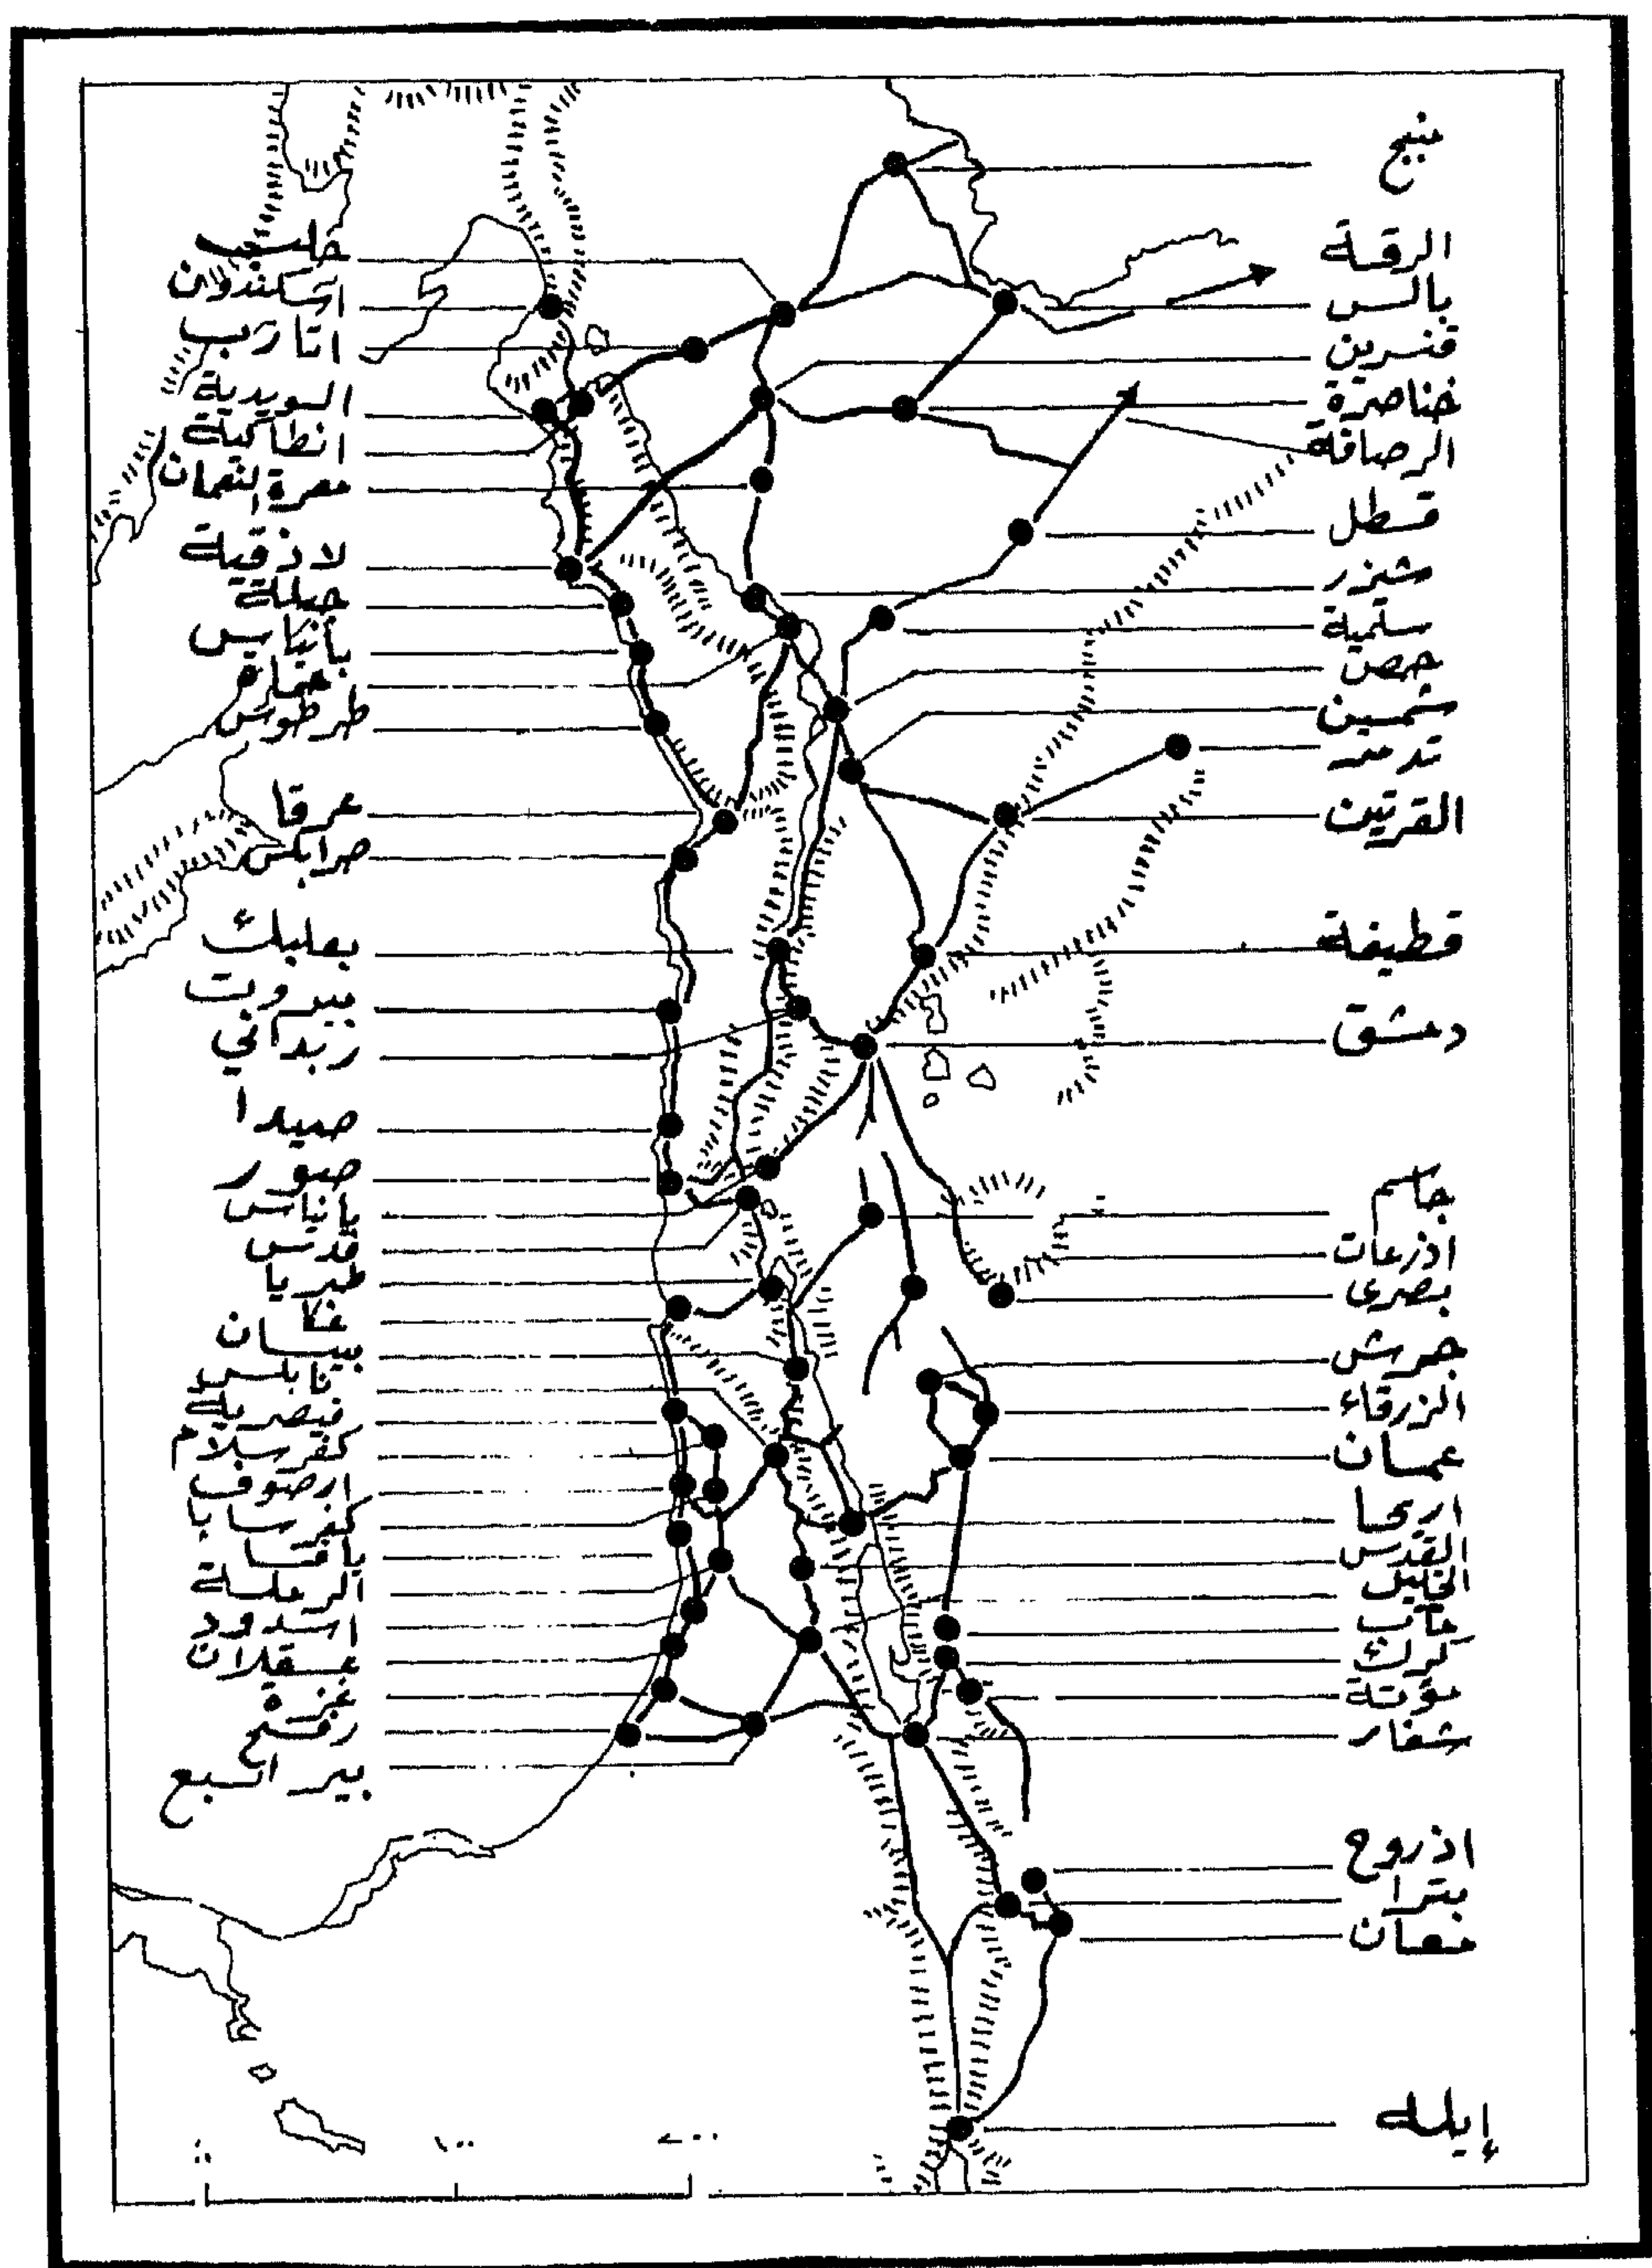 منبج
الرقة
بالس
قنسرين
خناصرة
الرصافة
قسطل
شيزر
سلمية
حمص
شمسين
تدمر
القريتين
قطيفة
دمشق
جاسم
اذرعات
بصرى
جرش
الزرقاء
عمان
اريحا
القدس
الخليل
مآب
كرك
مؤتة
اذروح
بترا
معان
إيله
حلب
اسكندرون
اتارب
السويدية
انطاكية
معرة النعمان
لاذقية
جبلة
بانياس
طرطوس
عرقا
بعلبك
بيروت
زبداني
صيدا
صور
بانياس
قدس
طبريا
عكا
بيسان
نابلس
قيصرية
كفرسلام
ارصوف
كفرسابا
يافا
الرملة
اسدود
عسقلان
غزة
رفح
بير السبع
١٠٠
٢٠٠